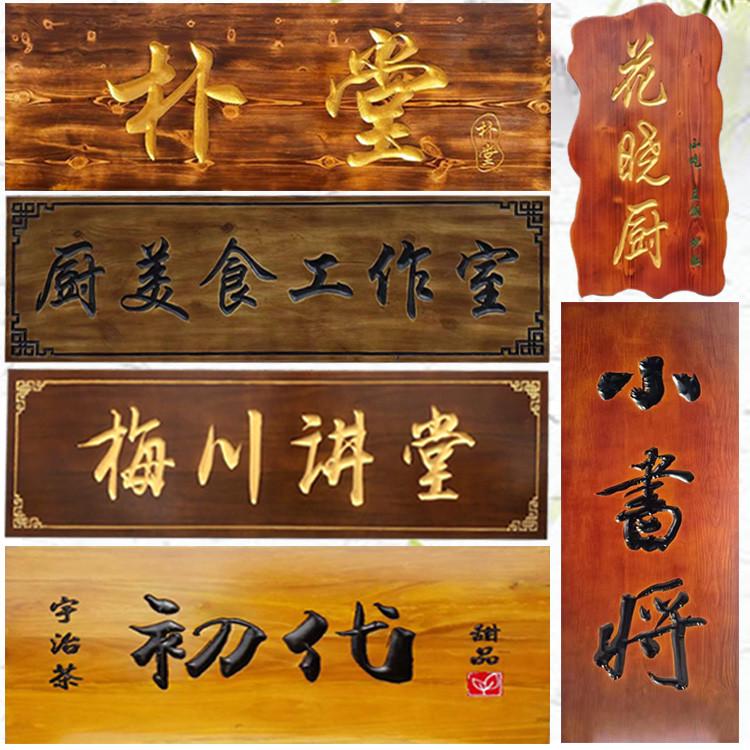 朴堂
朴堂
厨美食工作室
梅川讲堂
宇治茶
初代
甜品
花晓厨
小書将